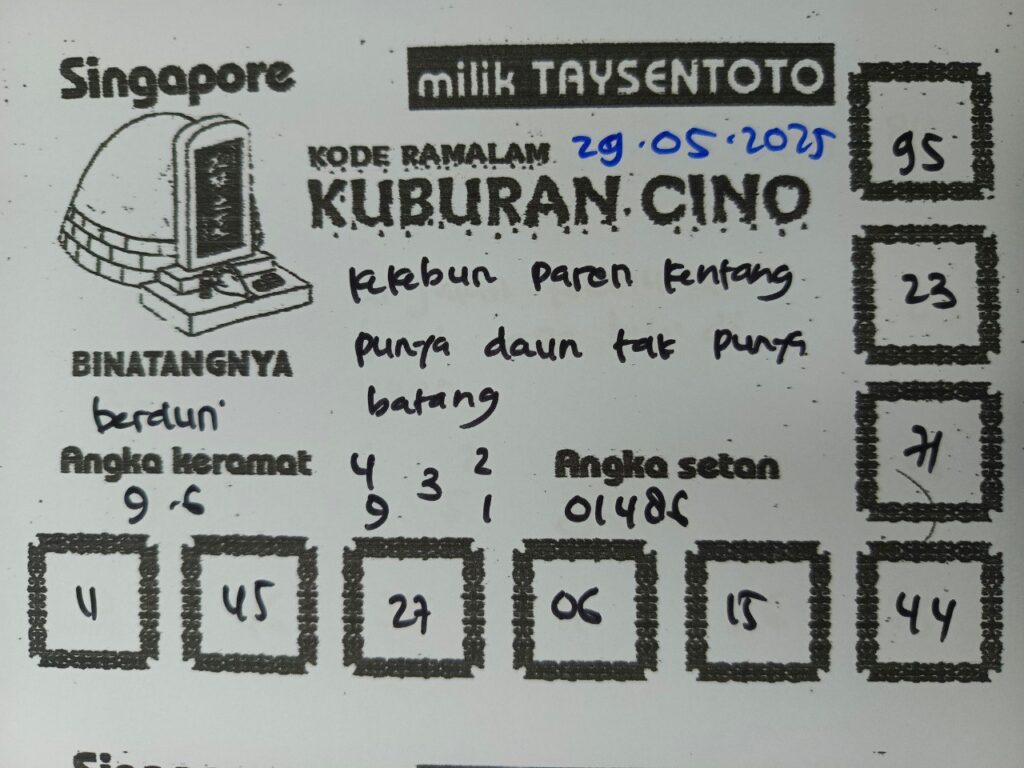 Singapore
milik TAYSENTOTO
KODE RAMALAM 29.05.2025
KUBURAN CINO
kekebun paren kentang
punya daun tak punya
batang
BINATANGNYA
berdun
Angka keramat
9.6
4 3 2
9 1
Angka setan
01486
95
23
71
4 45 27 06 15 44
Singapore